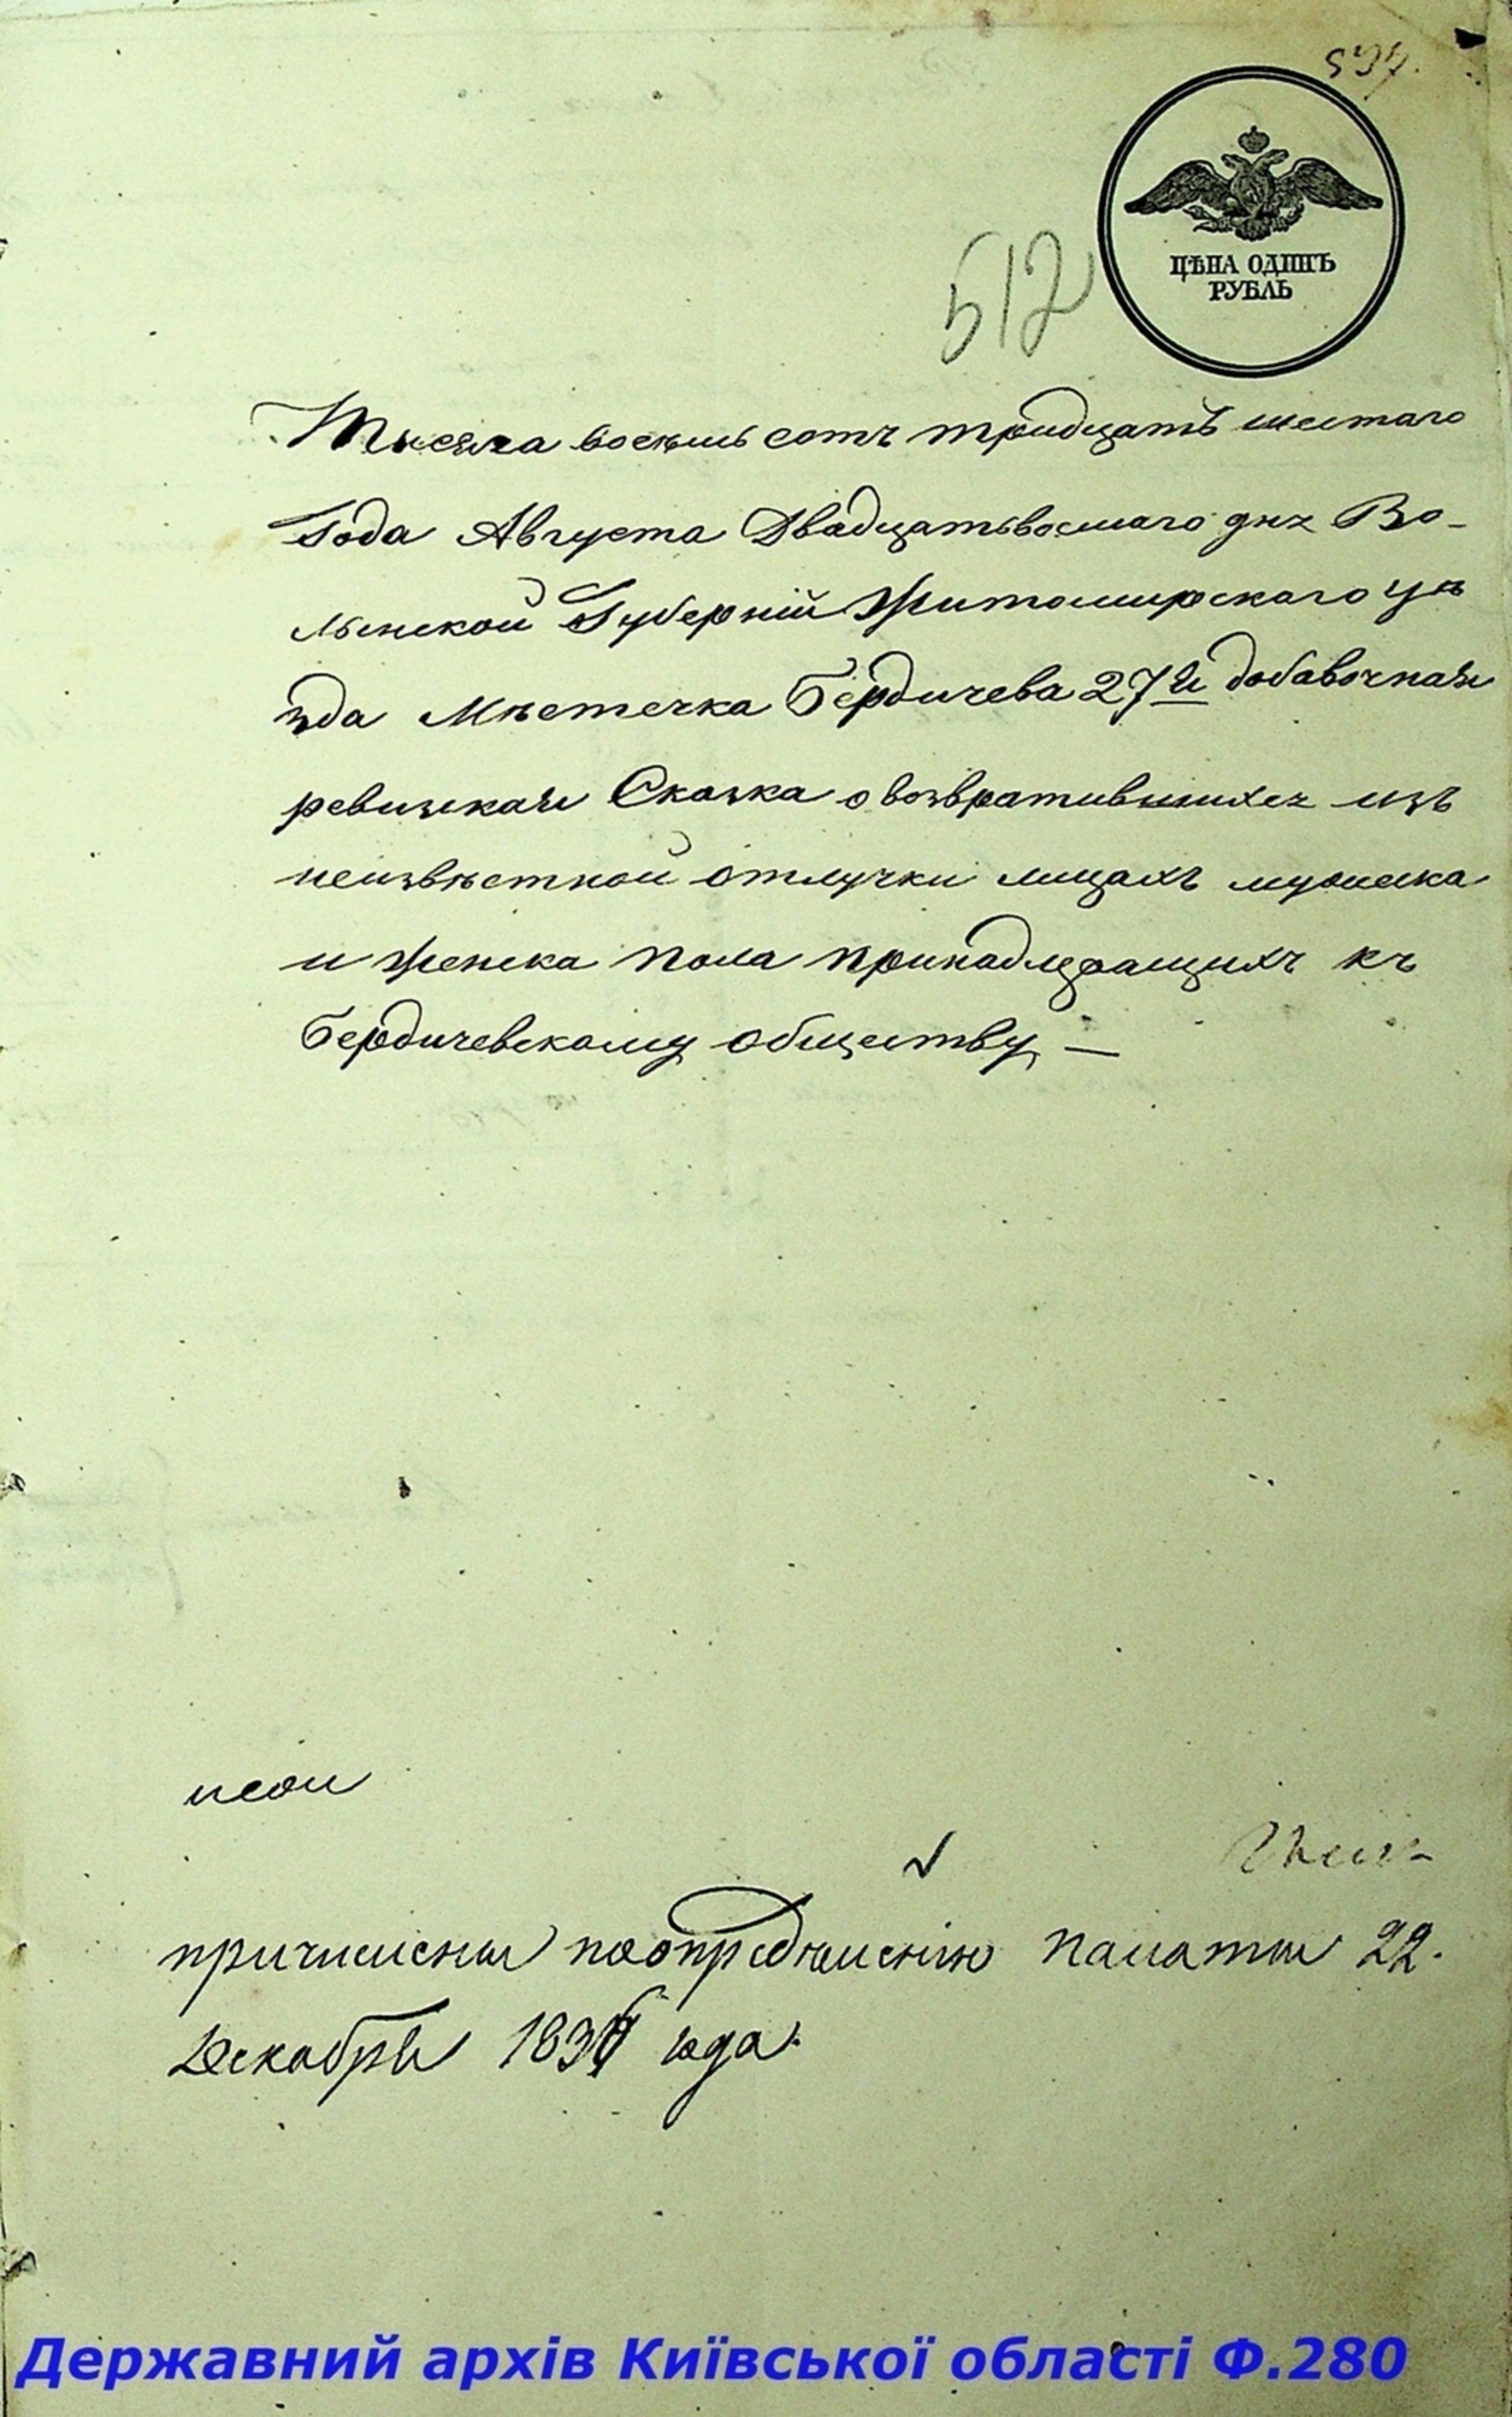 597.
ЦѢНА ОДИНЪ
РУБЛЬ
512
Тысяча восемь сотъ тридцать шестаго
Года Августа Двадцатьвосмаго дня Во-
лынской Губерніи Житомирскаго уѣ
зда Мѣстечка Бердичева 27я добавочная
ревизкая Сказка о возвратившихся изъ
неизвѣстной отлучки лицахъ мужеска
и женска пола принадлежащихъ къ
Бердичевскому обществу —
причислены по опредѣленію палаты 22.
Декабря 1836 года.
Державний архів Київської області Ф.280